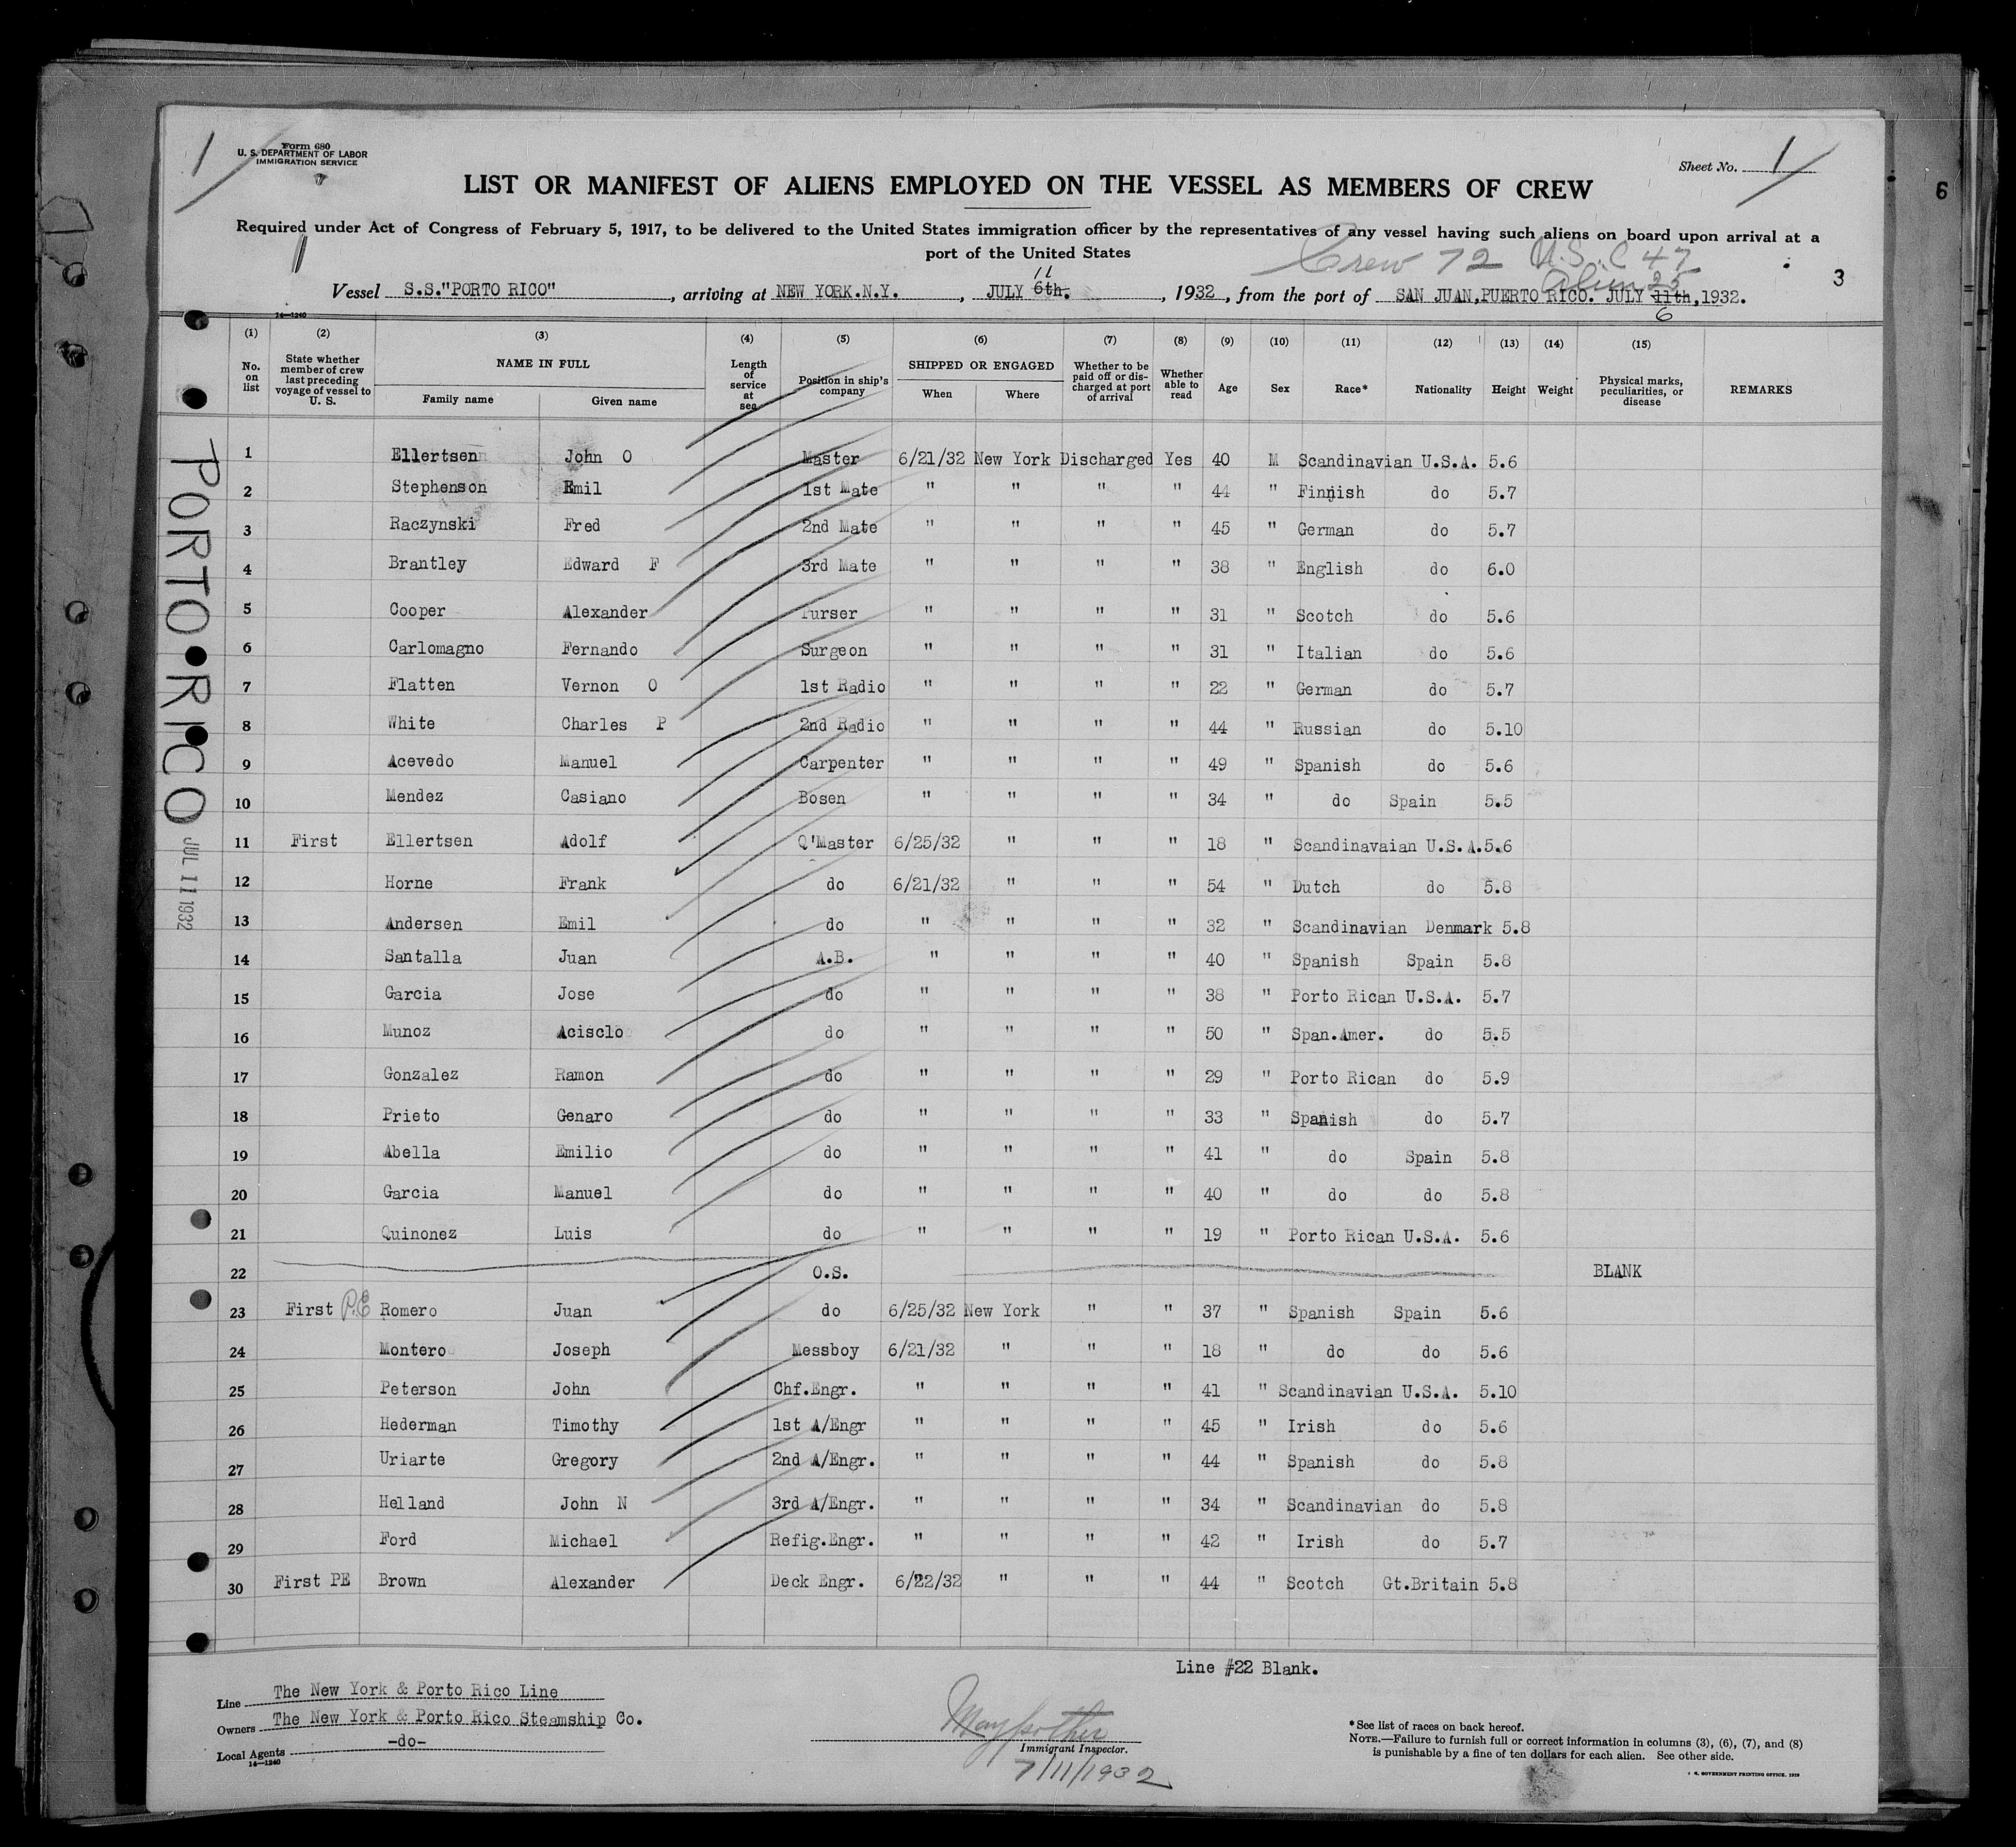 1
Form 680
U. S. DEPARTMENT OF LABOR
IMMIGRATION SERVICE
Sheet No. 1
6
LIST OR MANIFEST OF ALIENS EMPLOYED ON THE VESSEL AS MEMBERS OF CREW
Required under Act of Congress of February 5, 1917, to be delivered to the United States immigration officer by the representatives of any vessel having such aliens on board upon arrival at a
port of the United States
Crew 72 U.S.C 47
Alien 25
3
11
Vessel S.S."PORTO RICO", arriving at NEW YORK.N.Y., JULY 6th., 1932, from the port of SAN JUAN,PUERTO RICO. JULY 11th,1932.
6
14—1240
(1) (2) (3) (4) (5) (6) (7) (8) (9) (10) (11) (12) (13) (14) (15)
No. on list
State whether member of crew last preceding voyage of vessel to U. S.
NAME IN FULL
Family name
Given name
Length of service at sea
Position in ship's company
SHIPPED OR ENGAGED
When
Where
Whether to be paid off or discharged at port of arrival
Whether able to read
Age
Sex
Race*
Nationality
Height
Weight
Physical marks, peculiarities, or disease
REMARKS
1 Ellertsen John O Master 6/21/32 New York Discharged Yes 40 M Scandinavian U.S.A. 5.6
2 Stephenson Emil 1st Mate " " " " 44 " Finnish do 5.7
3 Raczynski Fred 2nd Mate " " " " 45 " German do 5.7
4 Brantley Edward F 3rd Mate " " " " 38 " English do 6.0
5 Cooper Alexander Purser " " " " 31 " Scotch do 5.6
6 Carlomagno Fernando Surgeon " " " " 31 " Italian do 5.6
7 Flatten Vernon O 1st Radio " " " " 22 " German do 5.7
8 White Charles P 2nd Radio " " " " 44 " Russian do 5.10
9 Acevedo Manuel Carpenter " " " " 49 " Spanish do 5.6
10 Mendez Casiano Bosen " " " " 34 " do Spain 5.5
11 First Ellertsen Adolf Q'Master 6/25/32 " " " 18 " Scandinavaian U.S.A.5.6
12 Horne Frank do 6/21/32 " " " 54 " Dutch do 5.8
13 Andersen Emil do " " " " 32 " Scandinavian Denmark 5.8
14 Santalla Juan A.B. " " " " 40 " Spanish Spain 5.8
15 Garcia Jose do " " " " 38 " Porto Rican U.S.A. 5.7
16 Munoz Acisclo do " " " " 50 " Span.Amer. do 5.5
17 Gonzalez Ramon do " " " " 29 " Porto Rican do 5.9
18 Prieto Genaro do " " " " 33 " Spanish do 5.7
19 Abella Emilio do " " " " 41 " do Spain 5.8
20 Garcia Manuel do " " " " 40 " do do 5.8
21 Quinonez Luis do " " " " 19 " Porto Rican U.S.A. 5.6
22 O.S. BLANK
23 First P.E Romero Juan do 6/25/32 New York " " 37 " Spanish Spain 5.6
24 Montero Joseph Messboy 6/21/32 " " " 18 " do do 5.6
25 Peterson John Chf.Engr. " " " " 41 " Scandinavian U.S.A. 5.10
26 Hederman Timothy 1st A/Engr " " " " 45 " Irish do 5.6
27 Uriarte Gregory 2nd A/Engr. " " " " 44 " Spanish do 5.8
28 Helland John N 3rd A/Engr. " " " " 34 " Scandinavian do 5.8
29 Ford Michael Refig.Engr. " " " " 42 " Irish do 5.7
30 First PE Brown Alexander Deck Engr. 6/22/32 " " " 44 " Scotch Gt.Britain 5.8
PORTO RICO
JUL 11 1932
Line #22 Blank.
Line The New York & Porto Rico Line
Owners The New York & Porto Rico Steamship Co.
Local Agents -do-
14—1240
Immigrant Inspector.
7/11/1932
*See list of races on back hereof.
NOTE.—Failure to furnish full or correct information in columns (3), (6), (7), and (8)
is punishable by a fine of ten dollars for each alien. See other side.
GOVERNMENT PRINTING OFFICE.